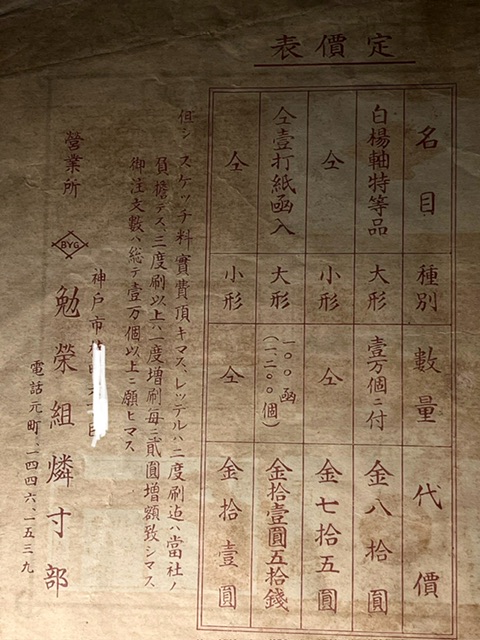 定價表
名目 種別 數量 代價
白楊軸特等品 大形 壹万個ニ付 金八拾圓
仝 小形 仝 金七拾五圓
仝壹打紙函入 大形 一〇〇函(一二〇〇個) 金拾壹圓五拾錢
仝 小形 仝 金拾壹圓
但シ スケッチ料實費頂キマス、レッテルハ二度刷迄ハ當社ノ
負擔デス、三度刷以上ハ一度増刷毎ニ貳圓増額致シマス
御注文數ハ、総テ壹万個以上ニ願ヒマス
神戸市
營業所 BYG 勉榮組燐寸部
電話元町、一四四六、一五三九